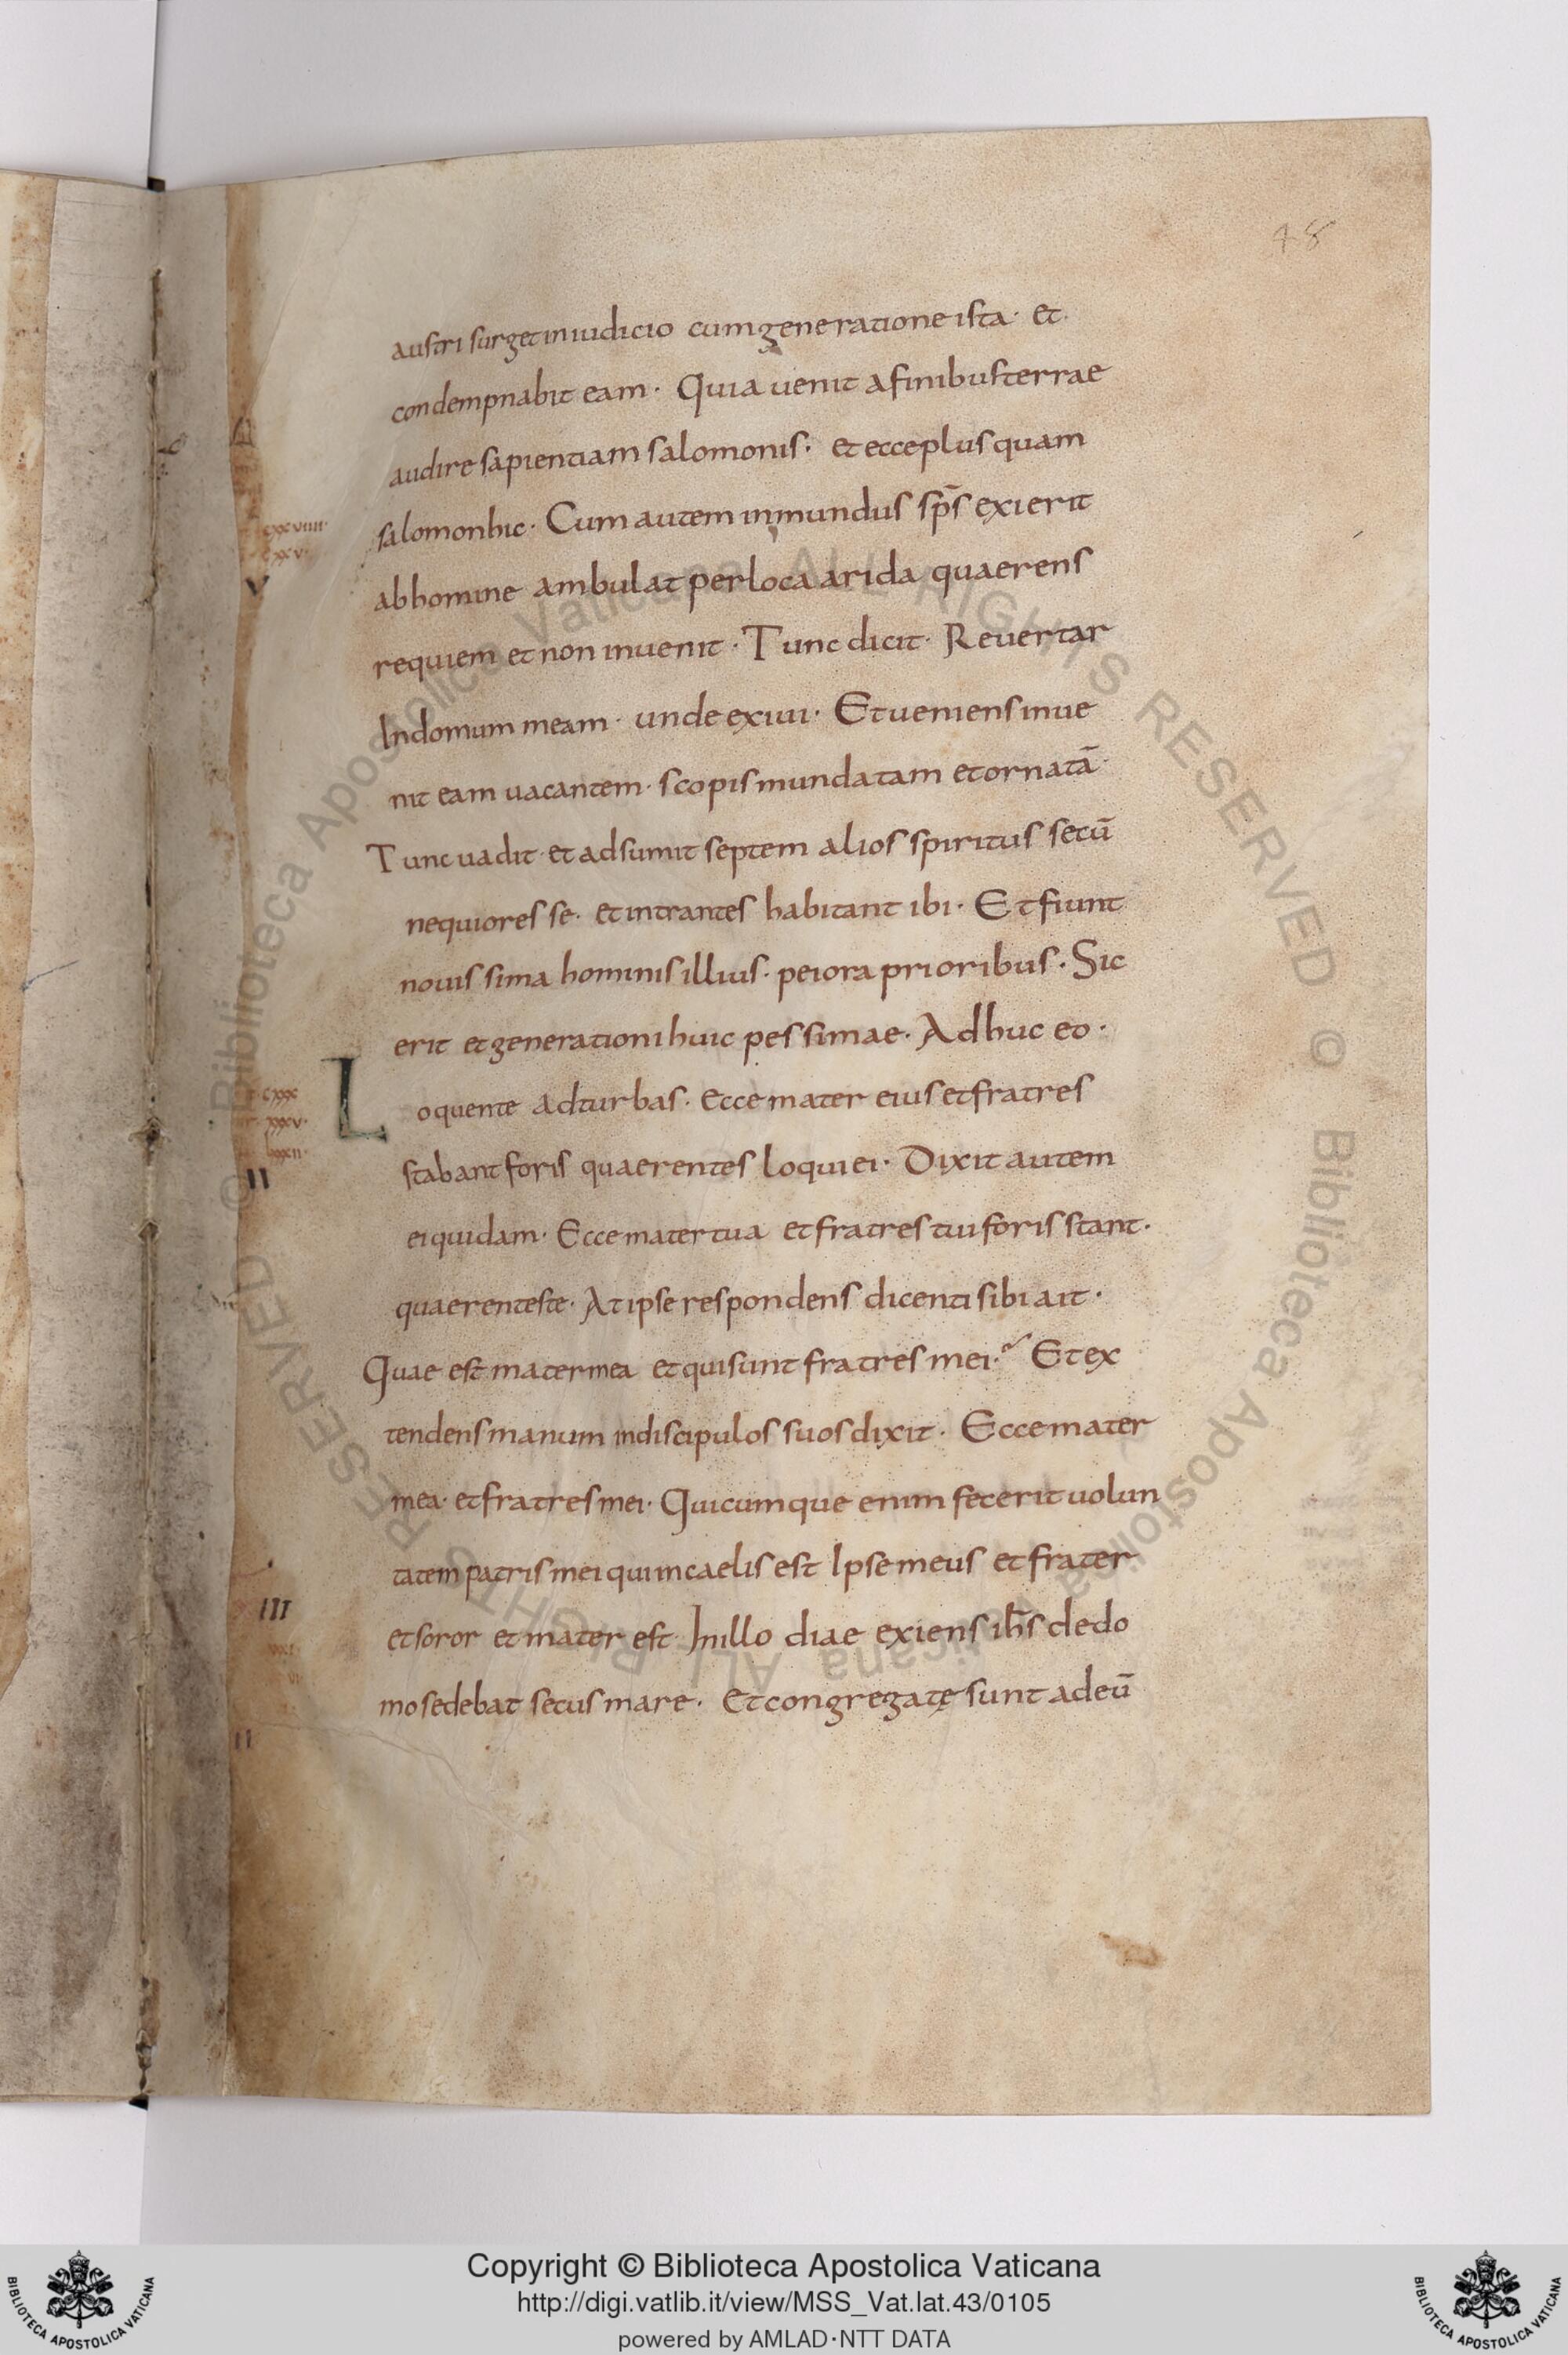 48
austri surget in iudicio cum generatione ista· et·
condempnabit eam· Quia uenit a finibus terrae
audire sapientiam salomonis· et ecce plus quam
salomon hic· Cum autem inmundus sp̅s exierit
ab homine ambulat per loca arida quaerens
requiem et non inuenit· Tunc dicit· Reuertar
In domum meam· unde exiui· Et ueniens inue
nit eam uacantem· scopis mundatam et ornatā·
Tunc uadit· et adsumit septem alios spiritus secū
nequiores se· et intrantes habitant ibi· Et fiunt
nouissima hominis illius· peiora prioribus· Sic
erit et generationi huic pessimae· Adhuc eo·
Loquente ad turbas· ecce mater eius et fratres
stabant foris quaerentes loqui ei· Dixit autem
ei quidam· Ecce mater tua et fratres tui foris stant·
quaerentes te· At ipse respondens dicenti sibi ait·
Quae est mater mea et qui sunt fratres mei·? Et ex
tendens manum in discipulos suos dixit· Ecce mater
mea· et fratres mei· Quicumque enim fecerit uolun
tatem patris mei qui in caelis est Ipse meus et frater
et soror et mater est· In illo diae exiens ih̅s de do
mo sedebat secus mare· Et congregatę sunt ad eū
V
II
III
II
Copyright © Biblioteca Apostolica Vaticana
http://digi.vatlib.it/view/MSS_Vat.lat.43/0105
powered by AMLAD·NTT DATA
BIBLIOTECA APOSTOLICA VATICANA
BIBLIOTECA APOSTOLICA VATICANA